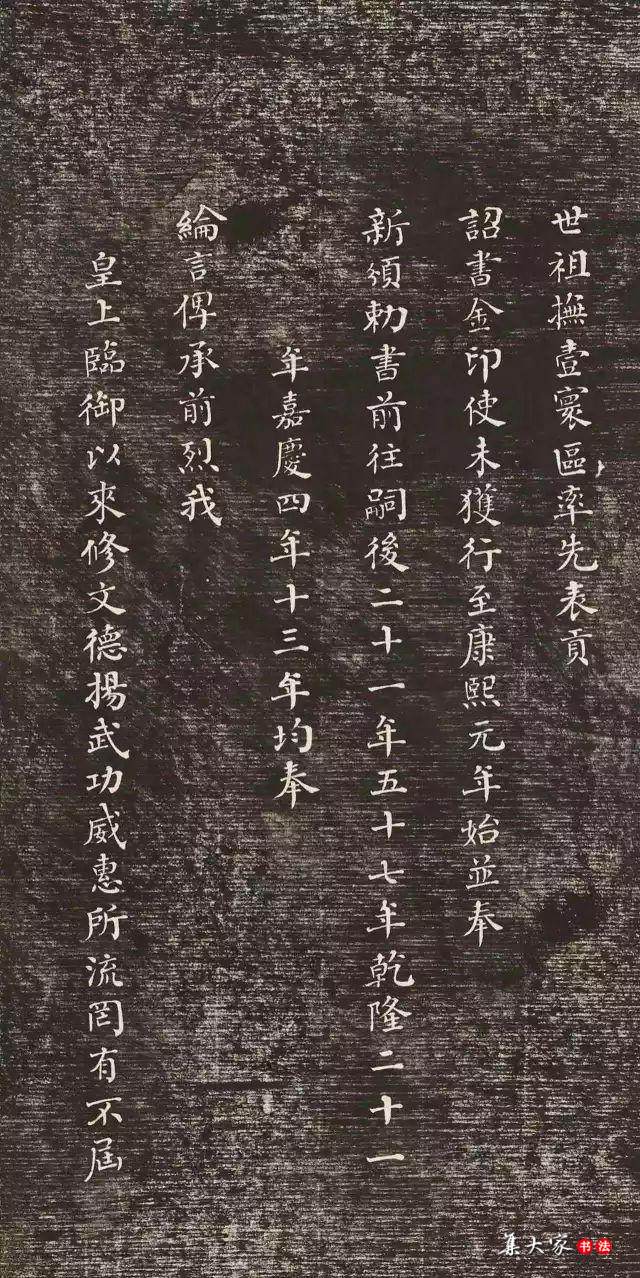 世祖撫壹寰區率先表貢
詔書金印使未獲行至康熙元年始並奉
新頒勅書前往嗣後二十一年五十七年乾隆二十一
年嘉慶四年十三年均奉
綸言俾承前烈我
皇上臨御以來修文德揚武功威惠所流罔有不屆
集大家书法